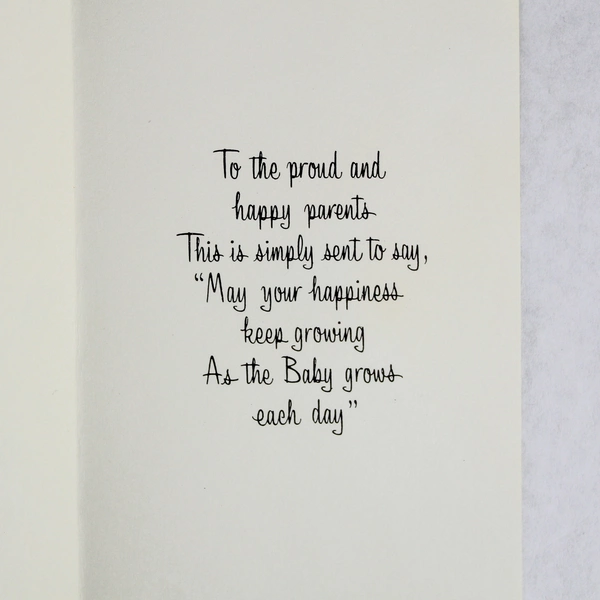 To the proud and
happy parents
This is simply sent to say,
“May your happiness
keep growing
As the Baby grows
each day”